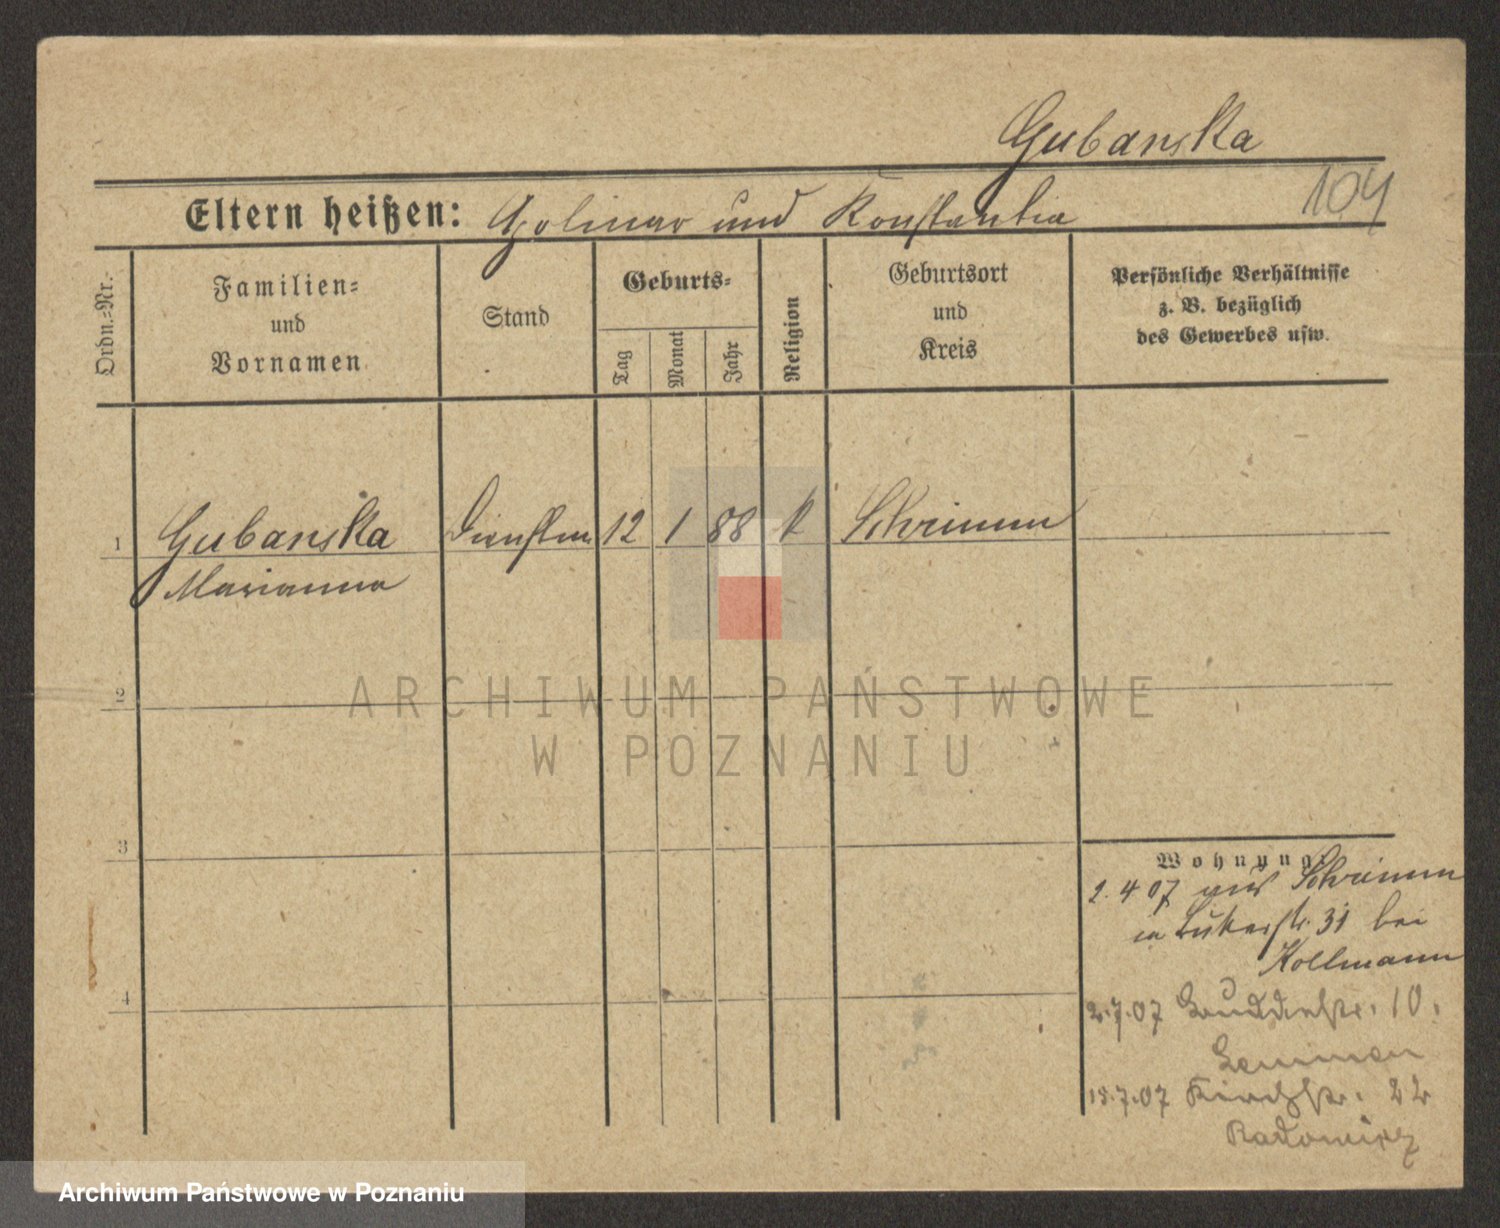 Gubanska
104
Eltern heißen: und Konstantia
Ordn.=Nr.
Familien=
und
Vornamen
Stand
Geburts=
Tag
Monat
Jahr
Religion
Geburtsort
und
Kreis
Persönliche Verhältnisse
z. B. bezüglich
des Gewerbes usw.
1 Gubanska Dienstm. 12 1 88 k Schrimm
Marianna
2
3
4
Wohnung
2.4 07 aus Schrimm
31 bei
Kollmann
2.7.07 10.
15.7.07 Kirchstr. 22
ARCHIWUM PAŃSTWOWE
W POZNANIU
Archiwum Państwowe w Poznaniu